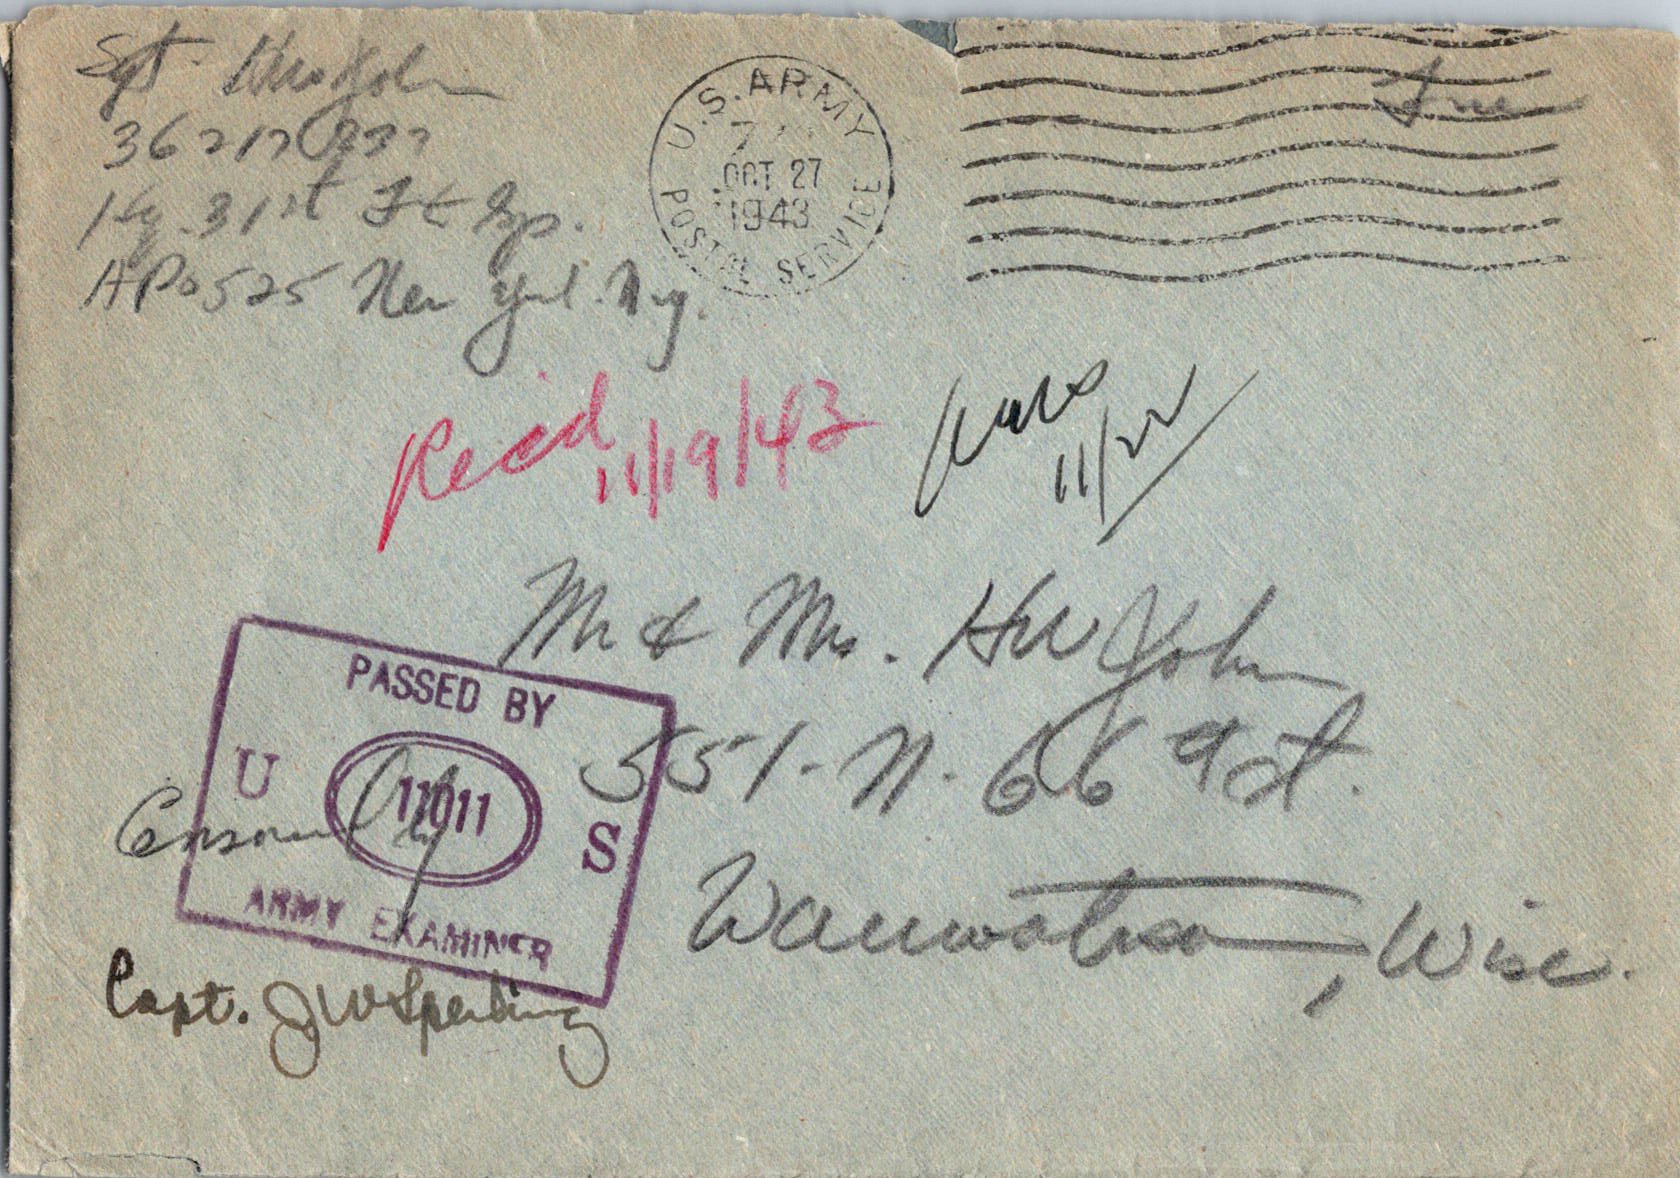 Sgt. H W John
36217
Hq. 31st Ftr Gp.
APO 525 New York. N.y.
U.S. ARMY
7
OCT 27
1943
POSTAL SERVICE
Free
Rec'd 11/19/43
11/22
Mr & Mrs. HW John
551-N. 66 St.
Wauwatosa, Wisc.
PASSED BY
U 11011 S
ARMY EXAMINER
Censored By
Capt. JW Sperling